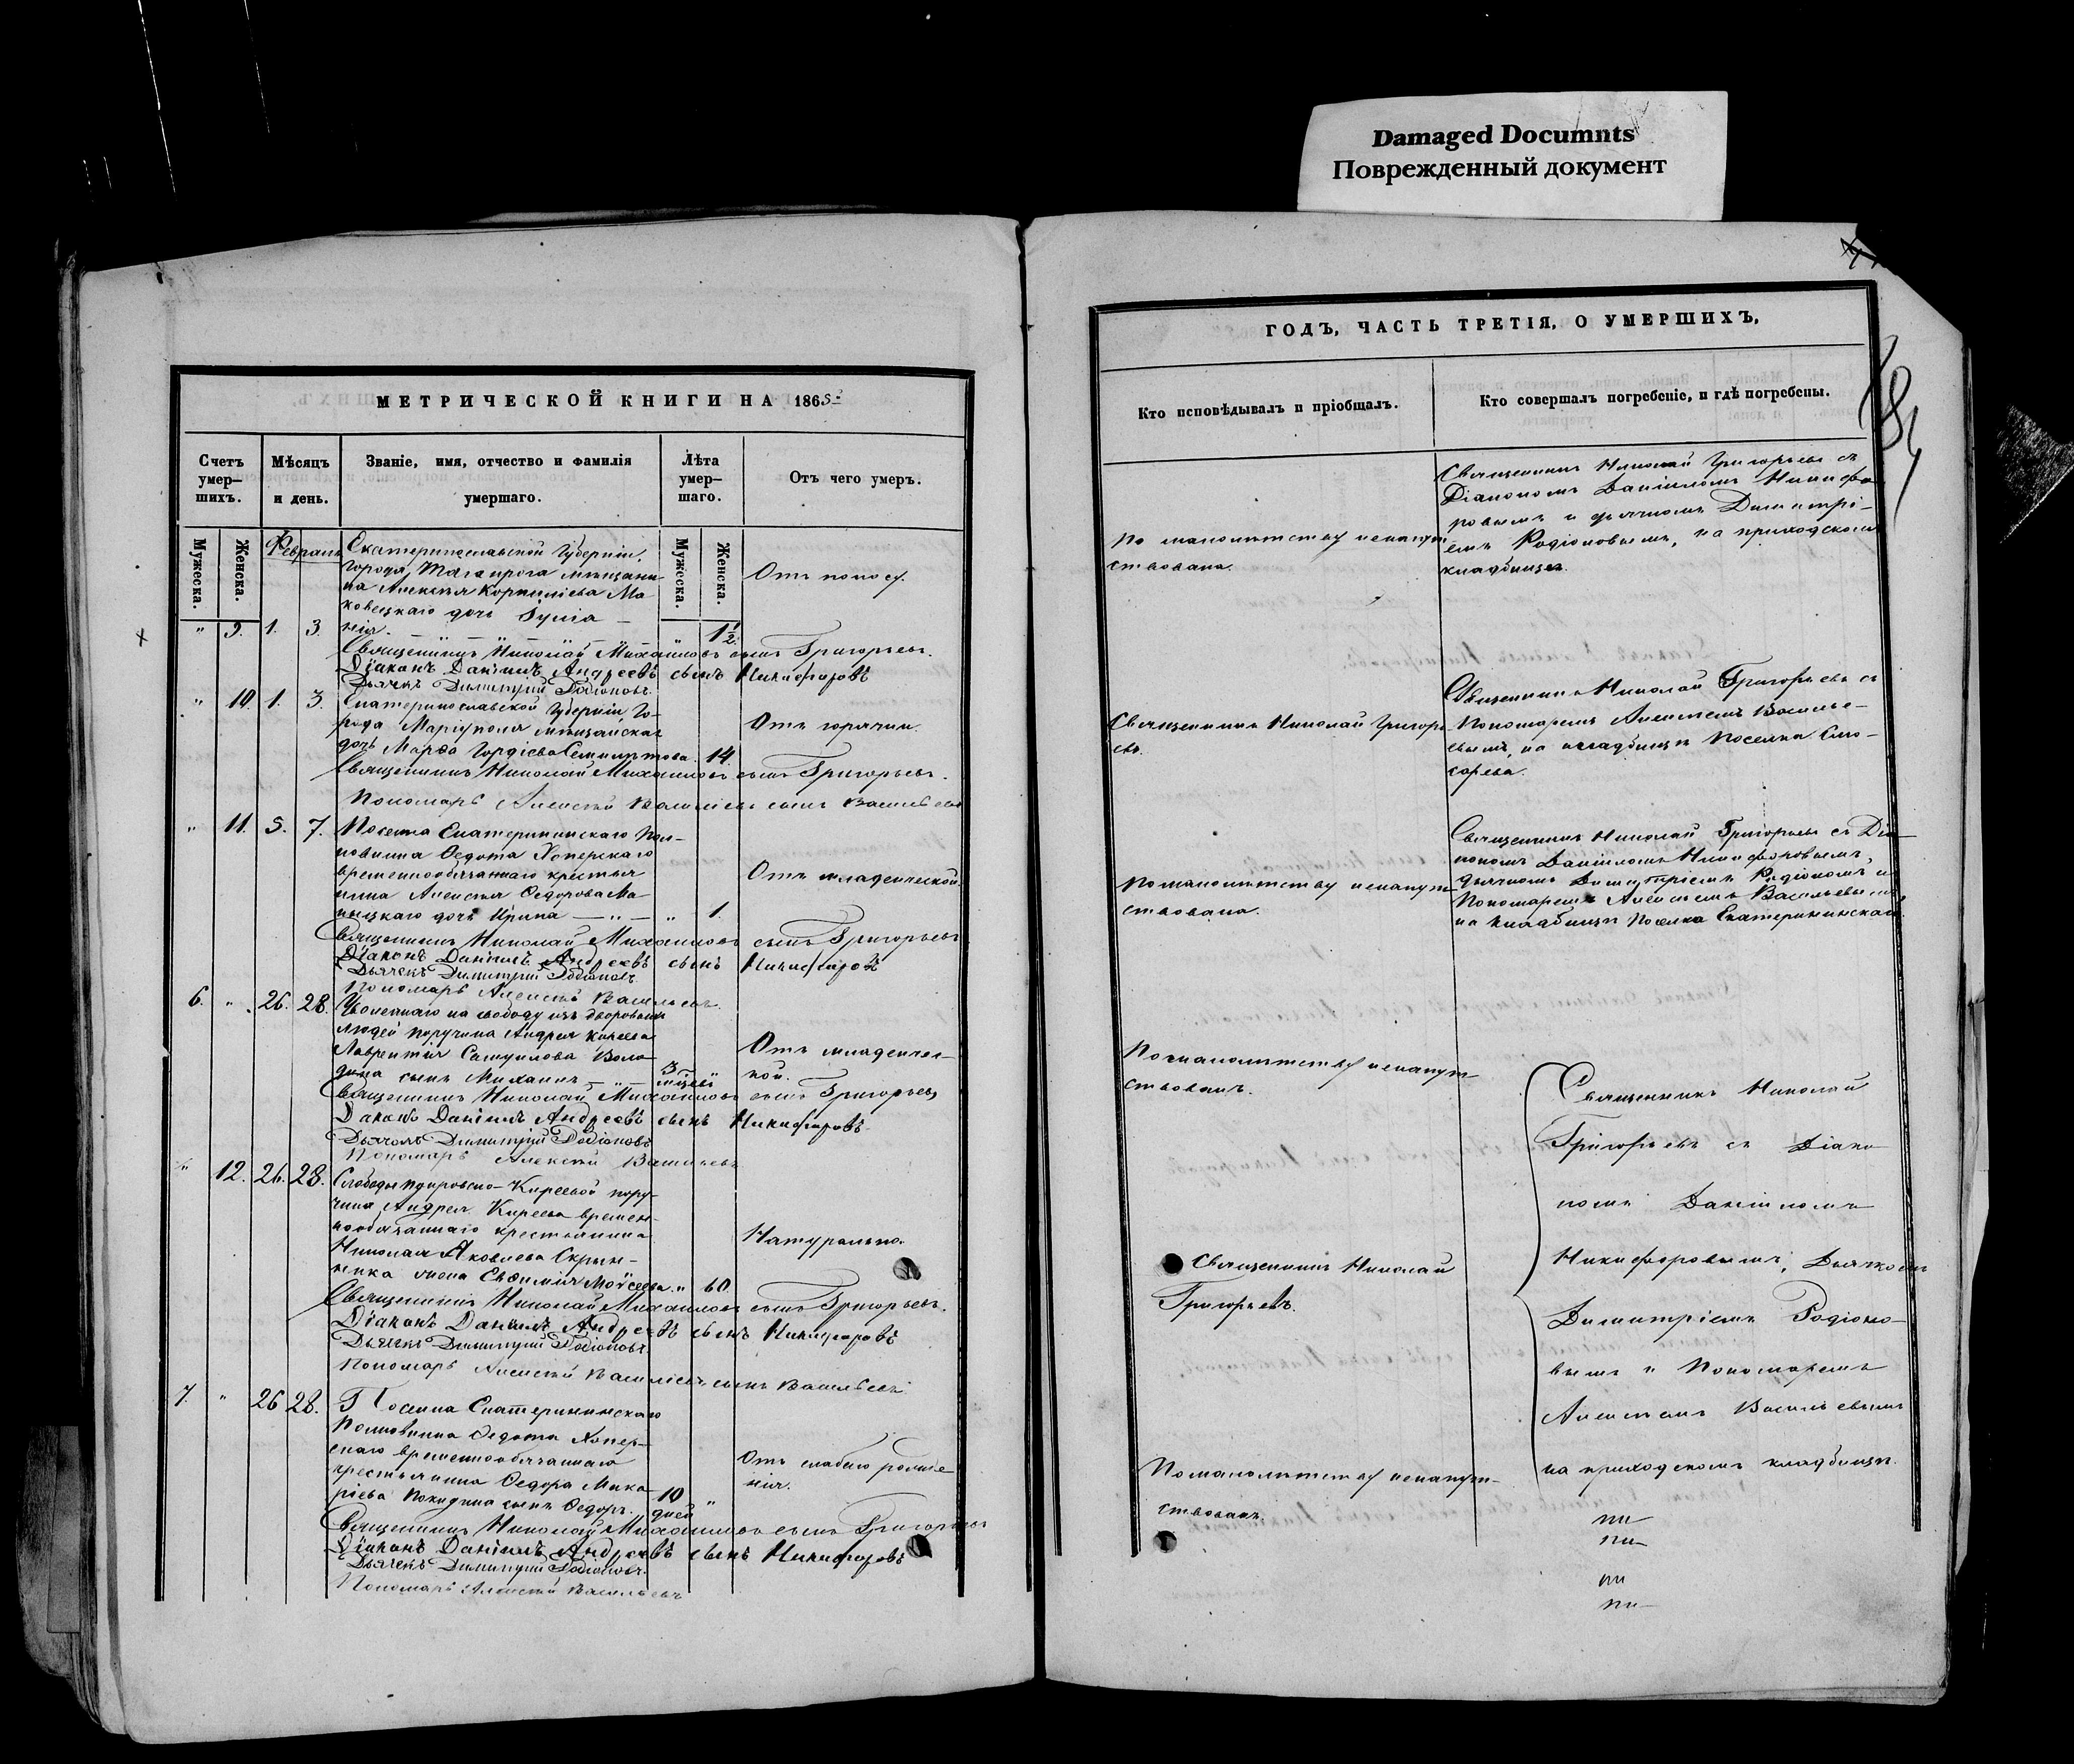 Damaged Documnts
Поврежденный документ
МЕТРИЧЕСКОЙ КНИГИ НА 1865
Счетъ умер-шихъ.
Мѣсяцъ и день.
Званіе, имя, отчество и фамилія умершаго.
Лѣта умер-шаго.
Отъ чего умеръ.
Мужеска.
Женска.
Мужеска.
Женска.
Февраль
Екатеринославской Губерніи,
города Таганрога мѣщани-
на Алексѣя Корниліева Ма-
ковецкаго дочь Іуліа-
" 9. 1. 3. нія. " 1 1/2.
Отъ поносу.
Священникъ Николай Михаиловъ сынъ Григорьевъ.
Діаконъ Даніилъ Андреевъ сынъ Никифоровъ
Дьячекъ Димитрій Родіоновъ
" 10. 1. 3. Екатеринославской Губерніи, Го-
рода Маріуполя мѣщанская
дочь Марѳа Гордіева 14.
Отъ горячки.
Священникъ Николай Михаиловъ сынъ Григорьевъ.
Пономарь Алексѣй Василіевъ сынъ Васильевъ
" 11. 5. 7. Поселка Екатерининскаго Пол-
ковника Ѳедота Хоперскаго
временнообязаннаго крестья
нина Алексѣя Ѳедорова Ма-
ныцкаго дочь Ирина — " — " 1.
Отъ младенческой.
Священникъ Николай Михаиловъ сынъ Григорьевъ
Діаконъ Даніилъ Андреевъ сынъ Никифоровъ
Дьячекъ Димитрій Родіоновъ
Пономарь Алексѣй Васильевъ.
6. " 26. 28. Уволеннаго на свободу изъ дворовыхъ
людей поручика Андрея Киреева
Лаврентія Самуилова Воло
дина сынъ Михаилъ — " — 3 мѣсяц
Отъ младенчес-
кой.
Священникъ Николай Михаиловъ сынъ Григорьевъ
Діаконъ Даніилъ Андреевъ сынъ Никифоровъ
Дьячокъ Димитрій Родіоновъ
Пономарь Алексѣй Васильевъ
" 12. 26. 28. Слободы Киреевой пору-
чика Андрея Киреева времен-
нообязаннаго крестьянина
Николая Яковлева Скрын-
ника жена Евѳимія Моѵсеева. " 60.
Натурально.
Священникъ Николай Михаиловъ сынъ Григорьевъ.
Діаконъ Даніилъ Андреевъ сынъ Никифоровъ
Дьячекъ Димитрій Родіоновъ
Пономарь Алексѣй Василіевъ сынъ Васильевъ
7. " 26 28. Поселка Екатерининскаго
Полковника Ѳедота Хопер-
скаго временнообязаннаго
крестьянина Ѳедора Мака-
ріева Покидина сынъ Ѳедоръ. 10 дней "
Отъ слабаго рожде
нія.
Священникъ Николай Михаиловъ сынъ Григорьевъ
Діаконъ Даніилъ Андреевъ сынъ Никифоровъ
Дьячекъ Димитрій Родіоновъ.
Пономарь Алексѣй Васильевъ
ГОДЪ, ЧАСТЬ ТРЕТІЯ, О УМЕРШИХЪ,
Кто исповѣдывалъ и пріобщалъ.
Кто совершалъ погребеніе, и гдѣ погребены.
По малолѣтству ненапут
ствована.
Священникъ Николай Григорьевъ съ
Діакономъ Даніиломъ Никифо
ровымъ и дьячкомъ Димитрі-
емъ Родіоновымъ, на приходскомъ
кладбищѣ.
Священникъ Николай Григорь
евъ.
Священникъ Николай Григорьевъ съ
Пономаремъ Алексѣемъ Василье-
вымъ, на кладбищѣ поселка
По малолѣтству ненапут-
ствована.
Священникъ Николай Григорьевъ съ Діа-
кономъ Даніиломъ Никифоровымъ,
дьячкомъ Димитріемъ Родіономъ и
Пономаремъ Алексѣемъ Васильевымъ
на кладбищѣ Поселка Екатерининскаго.
По малолѣтству ненапут-
ствованъ.
Священникъ Николай
Григорьевъ.
По малолѣтству ненапут-
ствованъ.
Священникъ Николай
Григорьевъ съ Діако
номъ Даніиломъ
Никифоровымъ, Дьячкомъ
Димитріемъ Родіоно-
вымъ и Пономаремъ
Алексѣемъ Васильевымъ
на приходскомъ кладбищѣ.